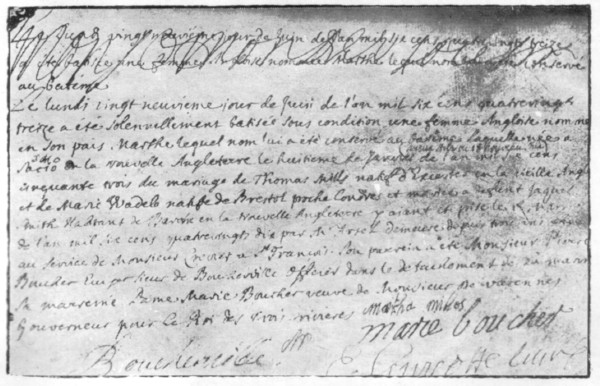 Le lundi vingt neuvieme jour de Juin de l'an mil six cens quatre vingt treize
a été baptisée une femme Angloise nommée Marthe lequel nom conservé
au batême
Le lundi vingt neuvieme jour de Juin de l'an mil six cens quatre vingt
treize a été solennellement batisée sous condition une femme Angloise nommée
en son païs Marthe lequel nom lui a été conservé au batême laquelle née a
en la nouvelle Angleterre le huitieme de Janvier de l'an mil six cens
cinquante trois du mariage de Thomas Mills natif d'Excester en la vieille Angl
et de Marie Wadel natife de Brestol proche Londres et mariée a defunt Jaque
Smith habitant de en la nouvelle Angleterre aiant été prise le Mar
de l'an mil six cens quatre vingt dix par Mr demeure depuis trois ans
au service de Monsieur Crevier a St François Son parrein a été Monsieur Pierre
Boucher Ecuyer sieur de Boucherville Officier dans le detachement de la marine
Sa marreine Dame Marie Boucher veuve de Monsieur de Varennes
Gouverneur pour le Roi des trois rivieres
martha
marie boucher
Boucherville